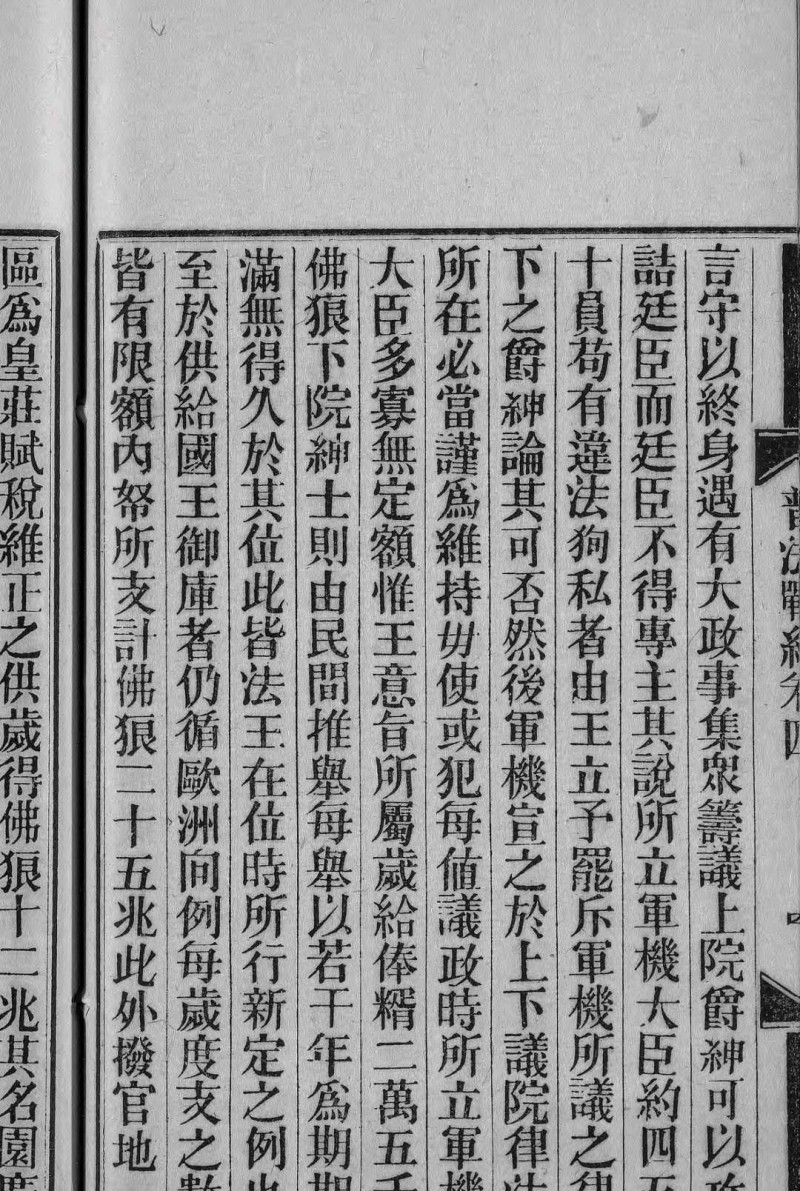 普法戰紀卷四
言守以終身遇有大政事集衆籌議上院爵紳可以攻
詰廷臣而廷臣不得專主其說所立軍機大臣約四五
十員苟有違法狥私者由王立予罷斥軍機所議之律
下之爵紳論其可否然後軍機宣之於上下議院律法
所在必當謹爲維持毋使或犯每値議政時所立軍機
大臣多寡無定額惟王意旨所屬歲給俸糈二萬五千
佛狼下院紳士則由民間推舉每舉以若干年爲期期
滿無得久於其位此皆法王在位時所行新定之例也
至於供給國王御庫者仍循歐洲向例每歲度支之數
皆有限額內帑所支計佛狼二十五兆此外撥官地
區爲皇莊賦稅維正之供歲得佛狼十二兆其名園